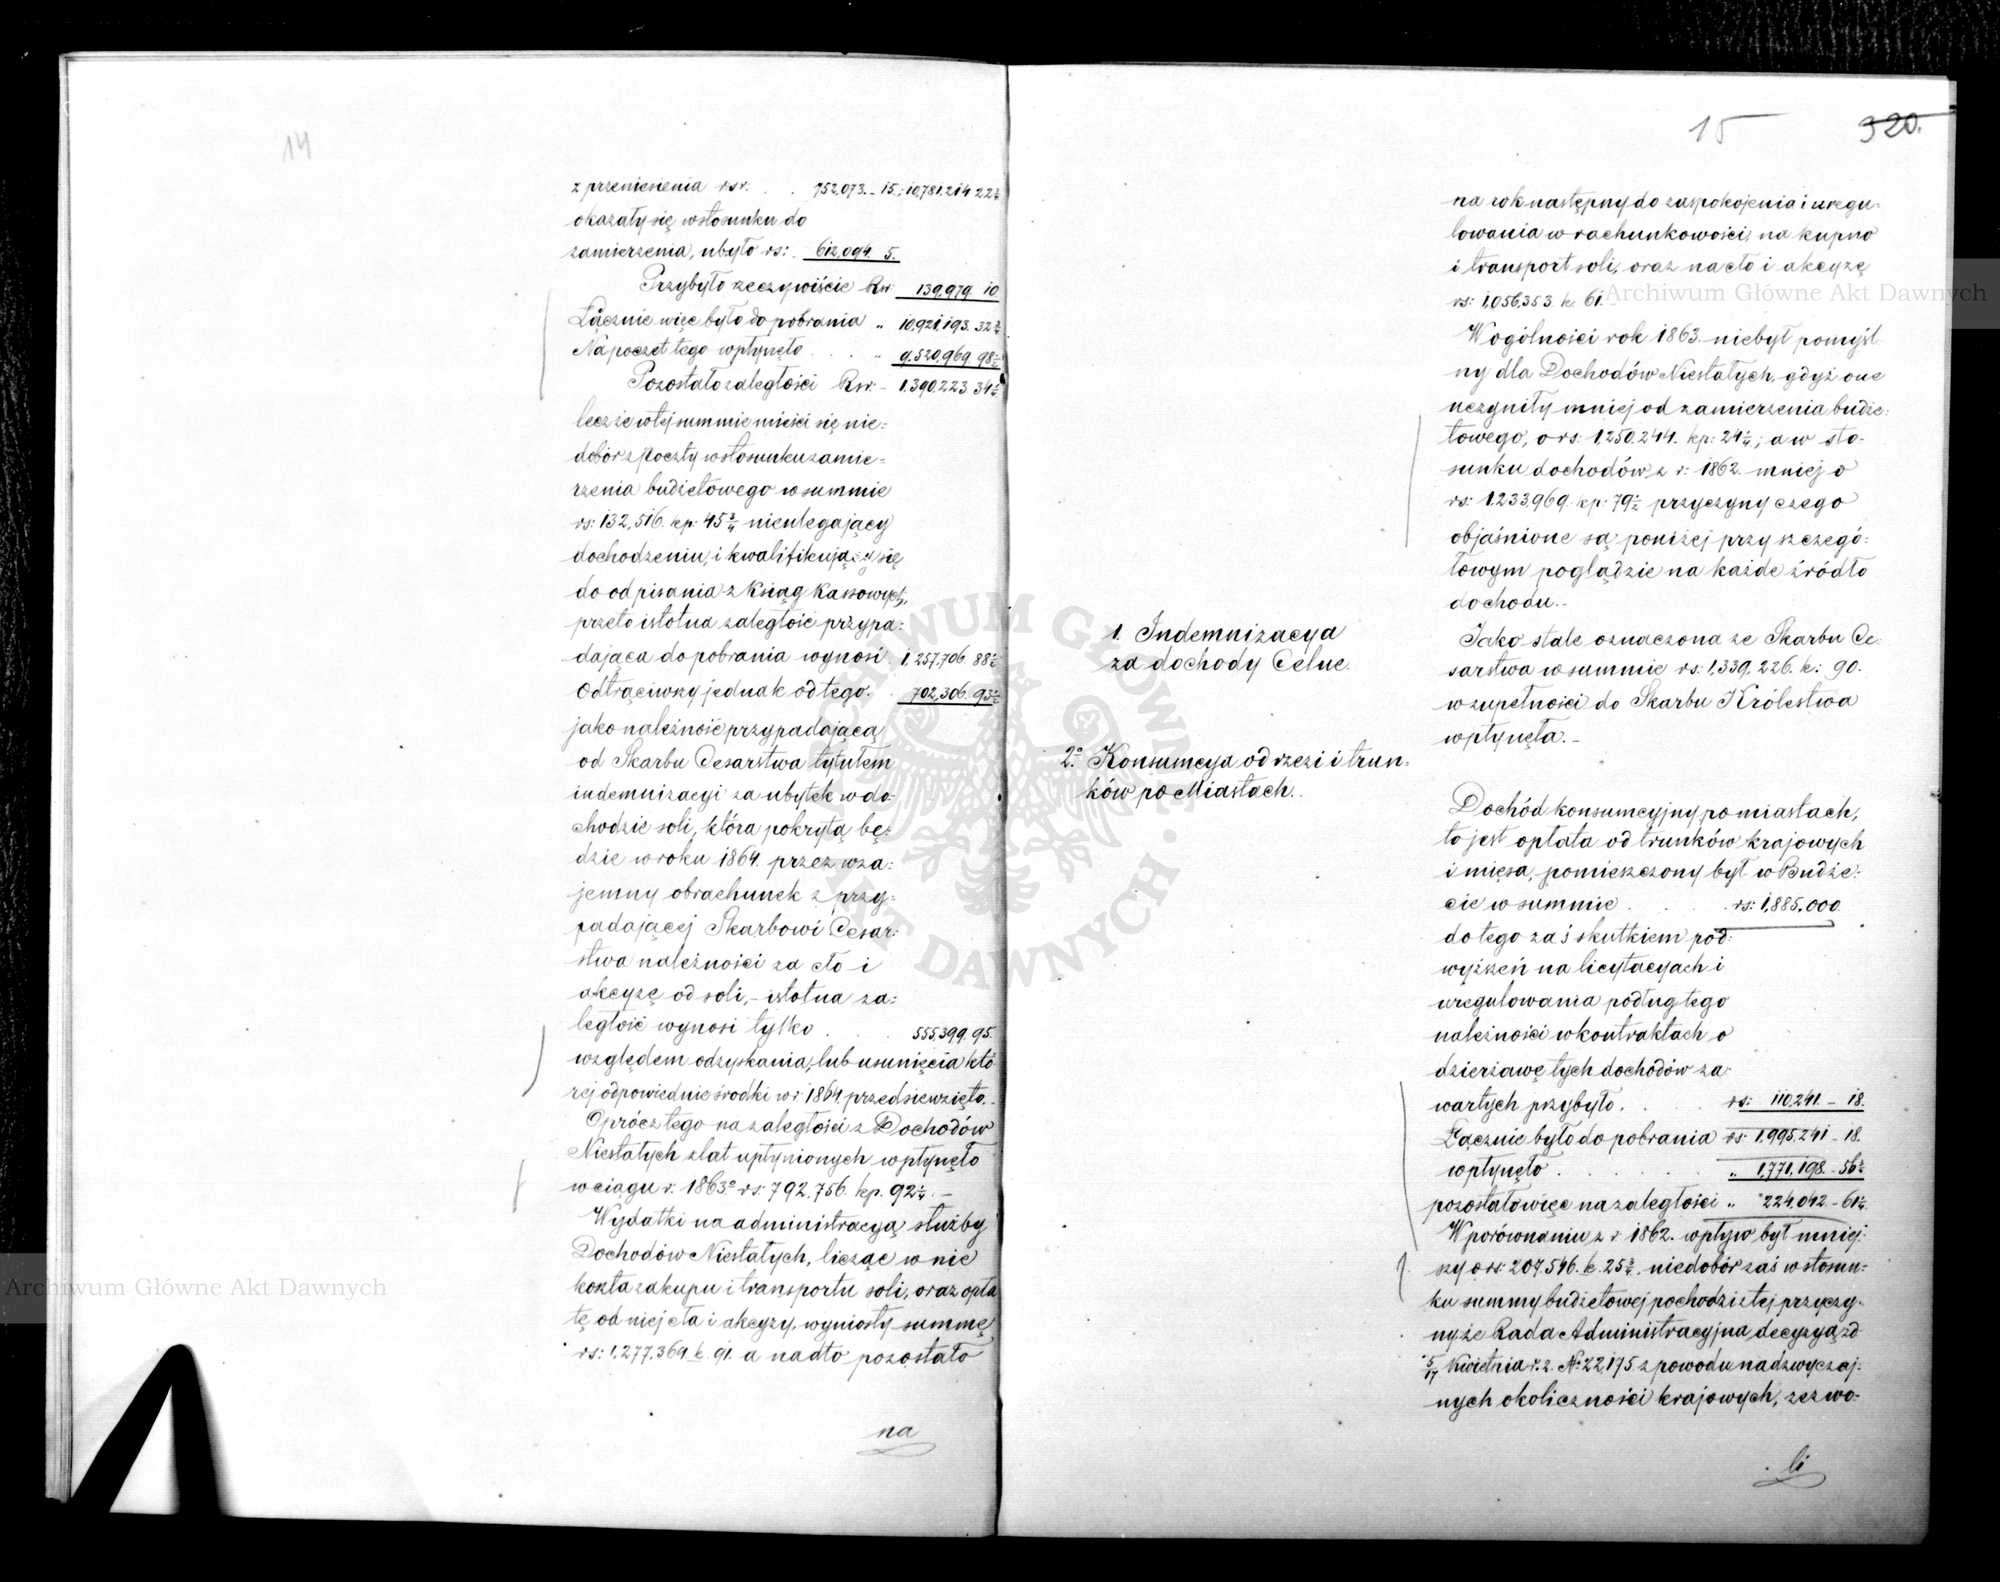 14
z przeniesienia rsr. . . 752,073.–15.; 10,781,214 22¾
okazały się w stosunku do
zamierzenia, ubyło rs: . 612,094. 5.
Przybyło rzeczywiście Rsr. 139,979 10
Łącznie więc było do pobrania „ 10,921,193. 32¾
Na poczet tego wpłynęło . . . . „ 9,520,969 98½
Pozostało zaległości Rsr. – 1,390,223 34¼
lecz że w tej summie mieści się nie:
dobór z poczty w stosunku zamie:
rzenia budżetowego w summie
rs: 132,516. kp: 45¾ nieulegający
dochodzeniu, i kwalifikujący się
do odpisania z ksiąg kassowych,
przeto istotna zaległość przypa:
dająca do pobrania wynosi . 1,257,706 88½
Odtrąciwszy jednak od tego . . 702,306. 93½
jako należność przypadającą
od Skarbu Cesarstwa tytułem
indemnizacyi za ubytek w do-
chodzie soli, która pokrytą bę:
dzie w roku 1864. przez wza:
jemny obrachunek z przy:
padającej Skarbowi Cesar:
stwa należności za cło i
akcyzę od soli, – istotna za:
ległość wynosi tylko . . 555,399.95.
względem odzyskania, lub usunięcia któ
rej odpowiednie środki w r: 1864 przedsiewzięto. –
Oprócz tego na zaległości z Dochodów
Niestałych z lat upłynionych wpłynęło
w ciągu r: 1863º rs: 792,756. kp. 92¼. –
Wydatki na administracyą służby
Dochodów Niestałych, licząc w nie
koszta zakupu i transportu soli, oraz opła
tę od niej cła i akcyzy, wyniosły summę
rs: 1,277,369 k. 91. a nadto pozostało
na
15
320.
na rok następny do zaspokojenia i uregu:
lowania w rachunkowości, na kupno
i transport soli, oraz na cło i akcyzę
rs: 1,056,353 k. 61.
W ogólności rok 1863. niebył pomyśl
ny dla Dochodów Niestałych, gdyż one
uczyniły mniej od zamierzenia budże:
towego, o rs: 1,250,244. kp: 24¼; a w sto-
sunku dochodów z r: 1862. mniej o
rs: 1,233,969. kp: 79½ przyczyny czego
objaśnione są poniżej przy szczegó:
łowym poglądzie na każde źródło
dochodu. –
1. Indemnizacya
za dochody Celne.
Jako stale oznaczona ze Skarbu Ce:
sarstwa w summie rs: 1,339,226. k: 90.
w zupełności do Skarbu Królestwa
wpłynęła. –
2º Konsumcya od rzezi i trun:
ków po Miastach.
Dochód konsumcyjny po miastach,
to jest opłata od trunków krajowych
i mięsa, pomieszczony był w Budże:
cie w summie . . . rs: 1,885,000.
do tego zaś skutkiem pod:
wyższeń na licytacyach i
uregulowania podług tego
należności w kontraktach o
dzierżawę tych dochodów za:
wartych przybyło. . . rs: 110,241. – 18.
Łącznie było do pobrania rs: 1,995,241 – 18.
wpłynęło . . . . . „ 1,771,198. – 56¾
pozostało więc na zaległości „ 224,042. – 61¼
W porównaniu z r: 1862. wpływ był mniej:
szy o rs: 207,546. k. 25¾. niedobór zaś w stosun:
ku summy budżetowej pochodzi z tej przyczy-
ny, że Rada Administracyjna decyzyą zd
5/17 Kwietnia r. z. Nº 22,175 z powodu nadzwyczaj:
nych okoliczności krajowych, zezwo-
li
Archiwum Główne Akt Dawnych
Archiwum Główne Akt Dawnych
ARCHIWUM GŁÓWNE AKT DAWNYCH